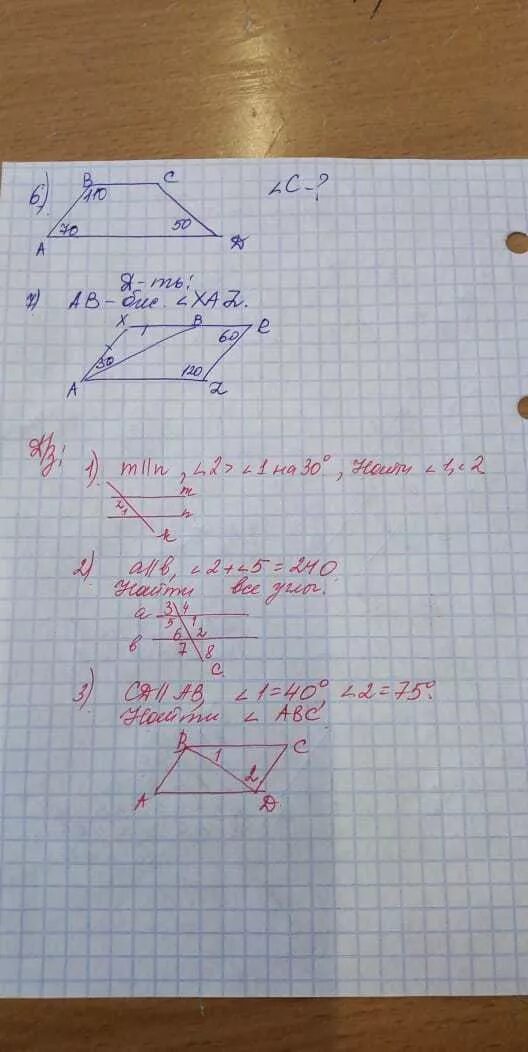 6)
B C ∠C-?
110
70 50
A D
Д-ть:
7) AB - бис. ∠XAZ.
X B C
1 60
30 120
A Z
Д/з:
1) m||n, ∠2 > ∠1 на 30°, Найти ∠1, ∠2
m
2
1 n
k
2) a||b, ∠2+∠5=240
Найти все углы.
a 3 4
5 1
6 2
в 7 8
C
3) CD||AB, ∠1=40°, ∠2=75°.
Найти ∠ ABC
B C
1
2
A D